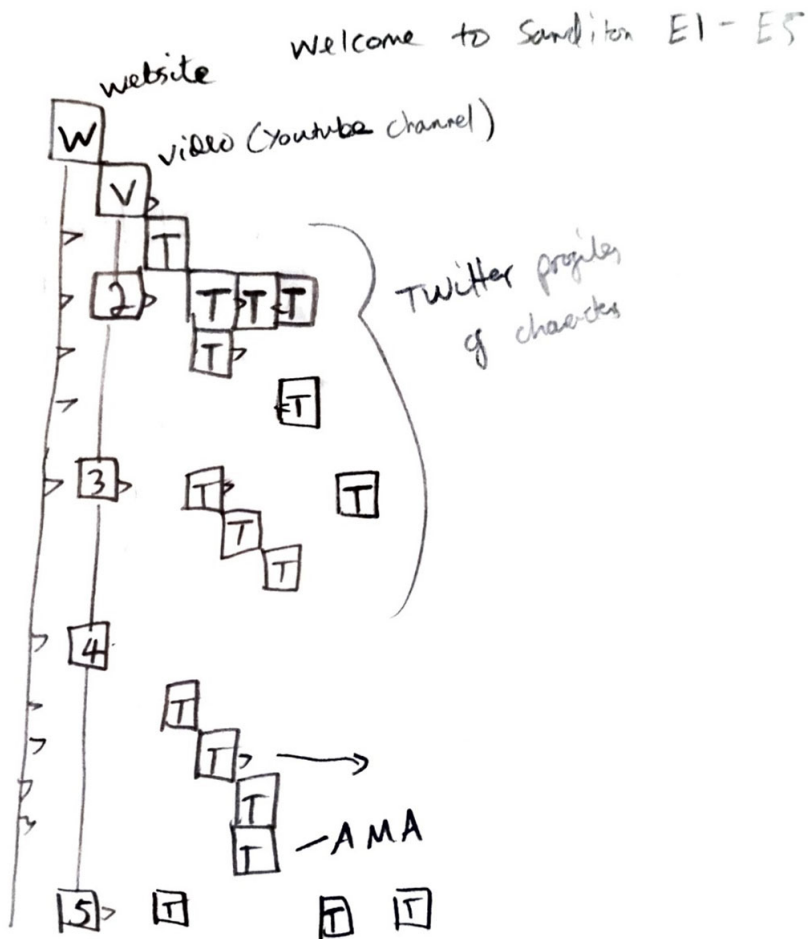 Welcome to Sanditon E1 - E5
website
W
video (Youtube channel)
V
T
2 T T T
Twitter profiles
of characters
T
T
3 T T
T
T
4
T
T
T
T - AMA
5 T T T